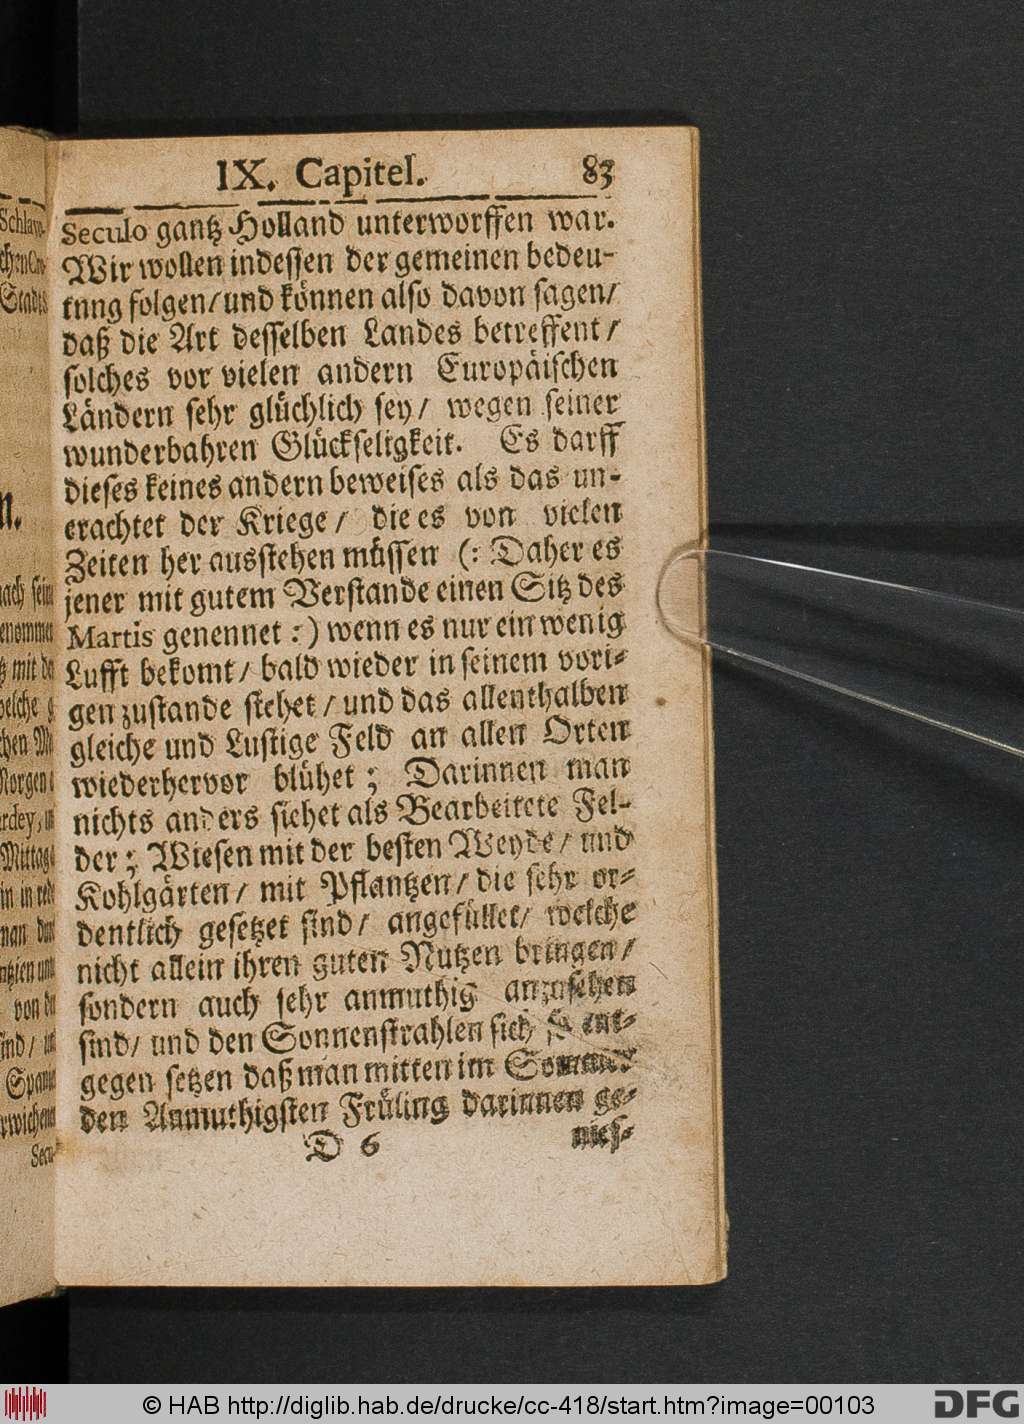 IX. Capitel. 83
Seculo gantz Holland unterworffen war.
Wir wollen indessen der gemeinen bedeu-
tnng folgen/ und können also davon sagen/
daß die Art desselben Landes betreffent/
solches vor vielen andern Europäischen
Ländern sehr glüchlich sey/ wegen seiner
wunderbahren Glückseligkeit. Es darff
dieses keines andern beweises als das un-
erachtet der Kriege/ die es von vielen
Zeiten her ausstehen müssen (: Daher es
jener mit gutem Verstande einen Sitz des
Martis genennet :) wenn es nur ein wenig
Lufft bekomt/ bald wieder in seinem vori-
gen zustande stehet/ und das allenthalben
gleiche und Lustige Feld an allen Orten
wiederhervor blühet; Darinnen man
nichts anders siehet als Bearbeitete Fel-
der; Wiesen mit der besten Weyde/ und
Kohlgärten/ mit Pflantzen/ die sehr or-
dentlich gesetzet sind/ angefüllet/ welche
nicht allein ihren guten Nutzen bringen/
sondern auch sehr anmuthig anzusehen
sind/ und den Sonnenstrahlen sich ent-
gegen setzen daß man mitten im Sommer
den Anmuthigsten Früling darinnen ge-
D 6 nies-
Secu-
© HAB http://diglib.hab.de/drucke/cc-418/start.htm?image=00103
DFG